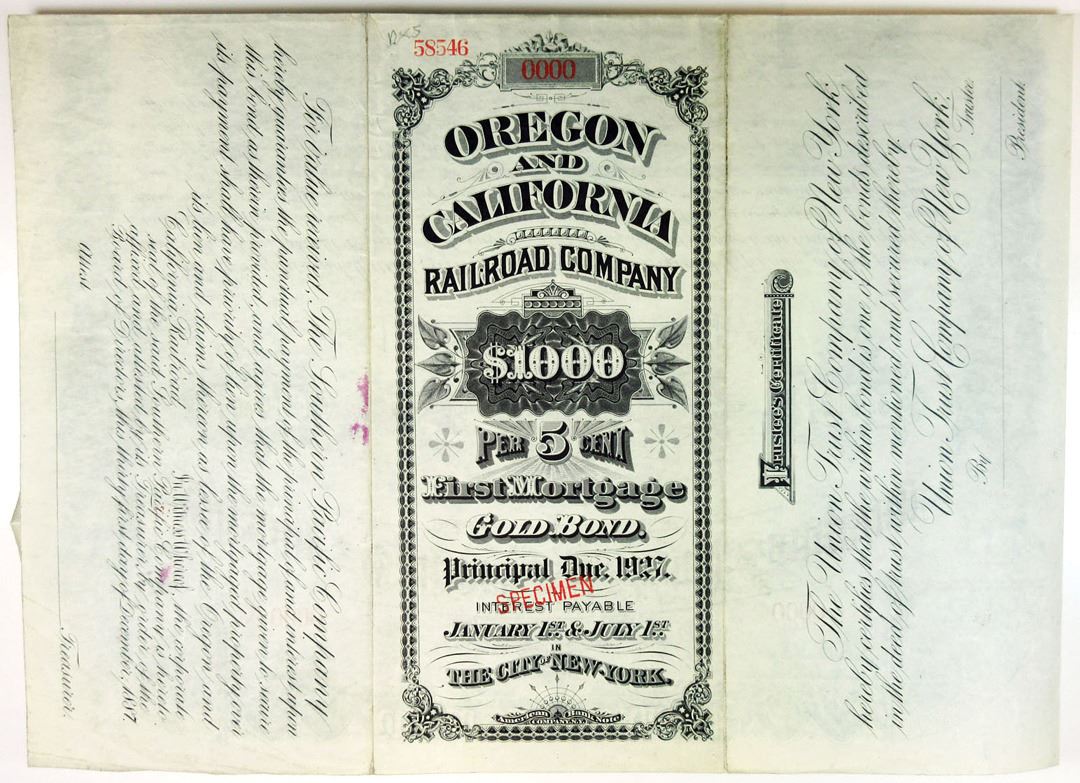 For Value received, The Southern Pacific Company
hereby guarantees the punctual payment of the principal and interest upon
this bond, as therein promised, and agrees that the mortgage given to secure
its payment shall have priority of lien on the mortgaged property over
its liens and claims thereon as lessee of the Oregon and
California Railroad.
In Witness Whereof, the corporate
seal of the said Southern Pacific Company is hereto
affixed and attested by its Treasurer, by order of its
Board of Directors, this thirty first day of December, 1887.
Attest
Treasurer.
58546
0000
OREGON
AND
CALIFORNIA
RAILROAD COMPANY
$1000
PER 5 CENT
First Mortgage
GOLD BOND.
Principal Due, 1927.
SPECIMEN
INTEREST PAYABLE
JANUARY 1ST. & JULY 1ST.
IN
THE CITY OF NEW-YORK.
American Bank Note
COMPANY, N.Y.
Trustee's Certificate
The Union Trust Company of New York
hereby certifies that the within bond is one of the bonds described
in the first mortgage within mentioned and secured thereby.
Union Trust Company of New York,
Trustee.
By
President.